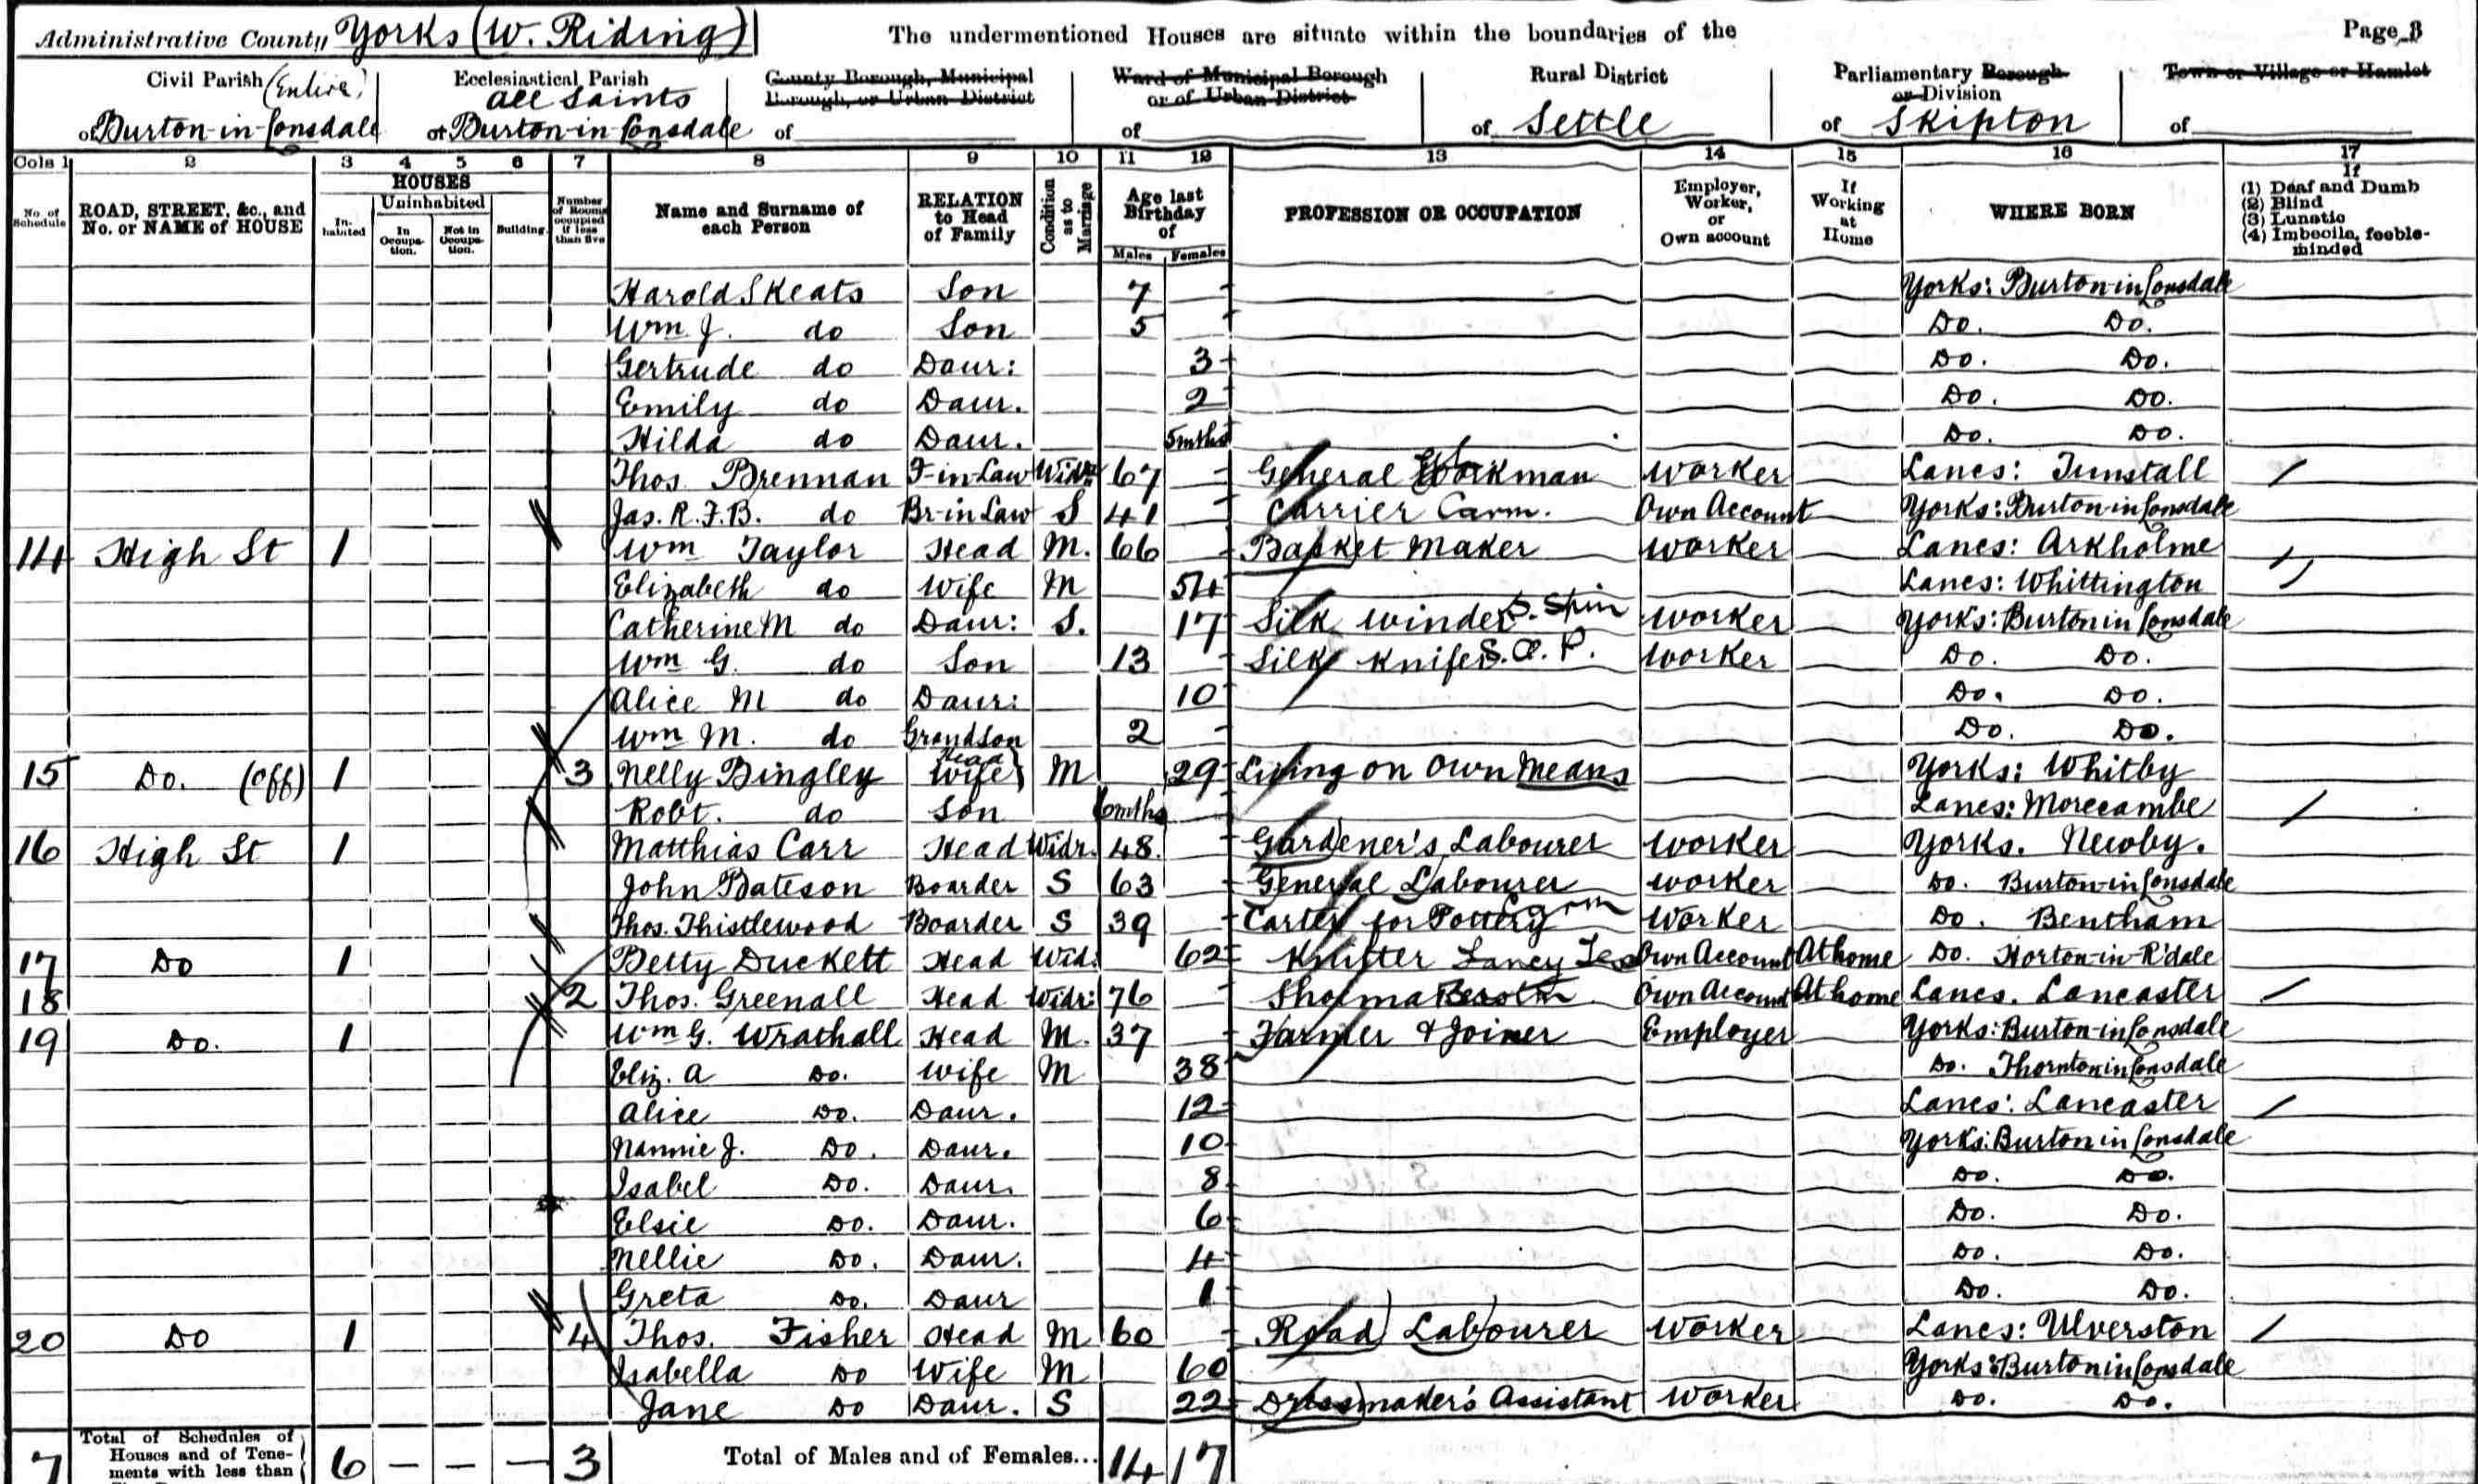 Administrative County Yorks (W. Riding) The undermentioned Houses are situate within the boundaries of the Page 3
Civil Parish (Entire) Ecclesiastical Parish County Borough, Municipal Ward of Municipal Borough Rural District Parliamentary Borough Town or Village or Hamlet
All Saints Borough, or Urban District or of Urban District or Division
of Burton-in-Lonsdale of Burton-in-Lonsdale of of of Settle of Skipton of
Cols 1 2 3 4 5 6 7 8 9 10 11 12 13 14 15 16 17
No. of Schedule ROAD, STREET, &c., and No. or NAME of HOUSE HOUSES In-habited Uninhabited In Occupa-tion. Not in Occupa-tion. Building. Number of Rooms occupied if less than five Name and Surname of each Person RELATION to Head of Family Condition as to Marriage Age last Birthday of Males Females PROFESSION OR OCCUPATION Employer, Worker, or Own account If Working at Home WHERE BORN If (1) Deaf and Dumb (2) Blind (3) Lunatic (4) Imbecile, feeble-minded
Harold Skeats Son 7 Yorks: Burton in Lonsdale
Wm J. do Son 5 Do. Do.
Gertrude do Daur: 3 Do. Do.
Emily do Daur. 2 Do. Do.
Hilda do Daur. 5mths Do. Do.
Thos. Brennan F-in-Law Widr 67 General Workman Worker Lancs: Tunstall
Jas. R.F.B. do Br-in Law S 41 Carrier Carm. Own Account Yorks: Burton in Lonsdale
14 High St 1 Wm Taylor Head M. 66 Basket Maker Worker Lancs: Arkholme
Elizabeth do Wife M 54 Lancs: Whittington
Catherine M do Daur: S. 17 Silk Winder S. Spin Worker Yorks: Burton in Lonsdale
Wm G. do Son 13 Silk Knifer Worker Do. Do.
Alice M do Daur: 10 Do. Do.
Wm M. do Grandson 2 Do. Do.
15 Do. (off) 1 3 Nelly Bingley Wife Head M 29 Living on Own Means Yorks: Whitby
Robt. do Son 6mths Lancs: Morecambe
16 High St 1 Matthias Carr Head Widr. 48 Gardener's Labourer Worker Yorks. Newby.
John Bateson Boarder S 63 General Labourer Worker Do. Burton-in Lonsdale
Thos. Thistlewood Boarder S 39 Carter for Pottery Worker Do. Bentham
17 Do 1 Betty Duckett Head Wid: 62 Knitter Own Account At home Do. Horton-in-R'dale
18 2 Thos. Greenall Head Widr: 76 Shoemaker Own Account At home Lancs. Lancaster
19 Do. 1 Wm G. Wrathall Head M. 37 Farmer & Joiner Employer Yorks: Burton-in Lonsdale
Eliz. A Do. Wife M 38 Do. Thornton in Lonsdale
Alice Do. Daur. 12 Lancs: Lancaster
Nannie J. Do. Daur. 10 Yorks: Burton in Lonsdale
Isabel Do. Daur. 8 Do. Do.
Elsie Do. Daur. 6 Do. Do.
Nellie Do. Daur. 4 Do. Do.
Greta Do. Daur 1 Do. Do.
20 Do 1 4 Thos. Fisher Head M 60 Road Labourer Worker Lancs: Ulverston
Isabella Do Wife M 60 Yorks: Burton in Lonsdale
Jane Do Daur. S 22 Dressmaker's Assistant Worker Do. Do.
7 Total of Schedules of Houses and of Tene-ments with less than 6 – – – 3 Total of Males and of Females... 14 17